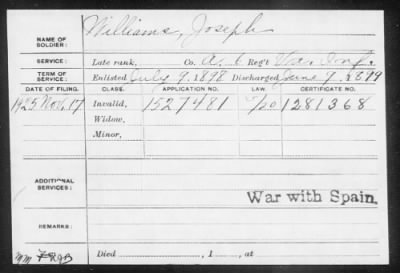 NAME OF SOLDIER: Williams, Joseph
SERVICE: Late rank, Co. A. 6 Reg't Va. Inf.
TERM OF SERVICE: Enlisted July 9. 1898 Discharged June 9, 1899
DATE OF FILING. CLASS. APPLICATION NO. LAW. CERTIFICATE NO.
1925 Nov. 17 Invalid, 1527481 1281368
Widow,
Minor,
ADDITIONAL SERVICES:
War with Spain.
REMARKS:
Died , 1 , at